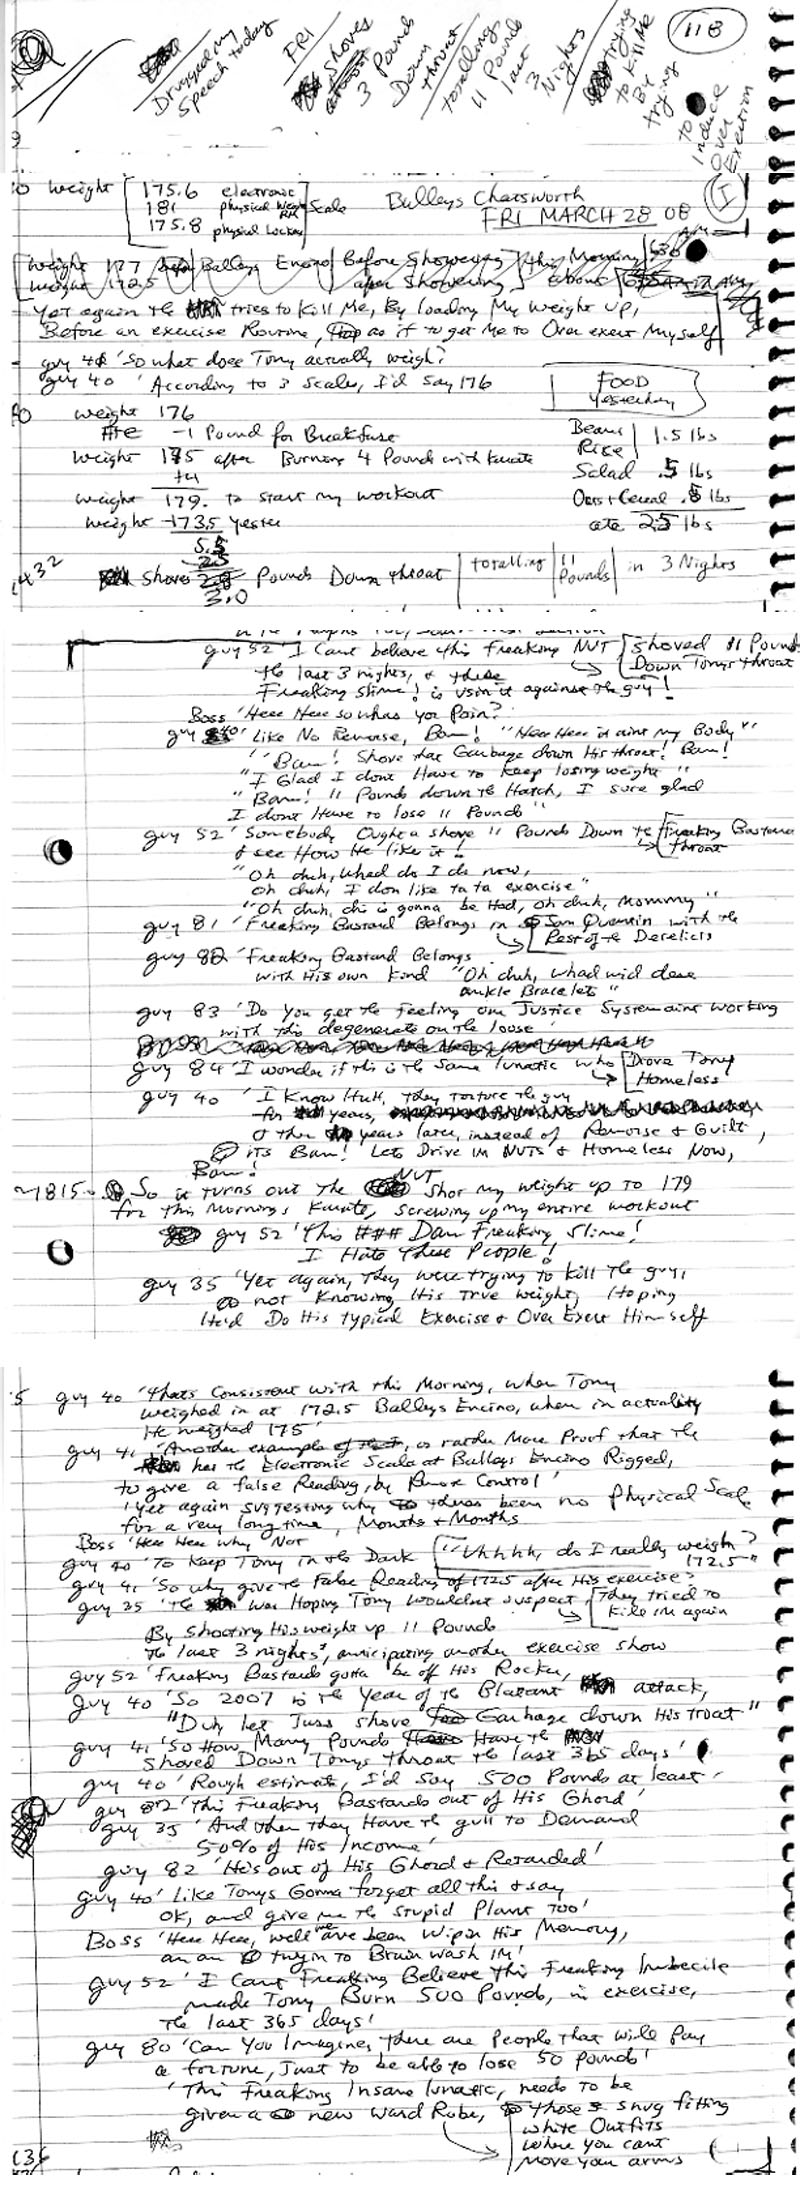 Drugged my
Speech today
FRI
Shoves
3 Pound
Down
throat
totalling
11 Pounds
last
3
Nights
trying
to Kill Me
By
trying
to
Induce
Over
Exertion
118
I
weight 175.6 electronic
181 physical Scale
175.8 physical Lockey
Balleys Chatsworth
FRI MARCH 28 08
weight 177 Balleys Encino Before Showering this Morning 630
weight 172.5 after Showering about
Yet again the tries to Kill Me, By loading My weight up,
Before an exercise Routine, as if to get Me to Over exert Myself
guy 41 'So what does Tony actually weigh?
guy 40 'According to 3 Scales, I'd say 176
FOOD
Yesterday
weight 176
Ate -1 Pound for Breakfase
Weight 175 after Burning 4 Pounds with Karate
+4
weight 179. to start my workout
weight -173.5 yester
5.5
2.5
3.0
Beans
Rice 1.5 lbs
Salad .5 lbs
Oats + Cereal .5 lbs
ate 2.5 lbs
1432
Shoves Pounds Down throat totalling 11 Pounds in 3 Nights
guy 52 'I Cant believe this Freaking NUT shoved 11 Pounds
Down Tonys throat
the last 3 nights, & these
Freaking slime! is usin it against the guy!
Boss 'Here Here so whas yor Poin?'
guy 40 'Like No Remorse, Bam! "Here Here it aint my Body"
"Bam! Shove that Garbage down His throat! Bam!
"I Glad I dont Have to Keep losing weight"
"Bam! 11 Pounds down the Hatch, I sure glad
I dont Have to lose 11 Pounds"
guy 52 'Somebody Ought a shove 11 Pounds Down the Freaking Bastards
throat
& see How He like it!
"Oh duh, whad do I do now,
oh duh, I don like ta ta exercise"
"Oh duh, dis is gonna be Had, oh duh, Mommy"
guy 81 'Freaking Bastard Belongs in San Quentin with the
Rest of the Derelicts
guy 82 'Freaking Bastard Belongs
with His own Kind "Oh duh, whad wid dese
ankle Bracelets"
guy 83 'Do You get the feeling our Justice System aint working
with this degenerate on the loose'
guy 84 'I wonder if this is the Same lunatic who Drove Tony
Homeless
guy 40 'I Know Huh, they torture the guy
for years,
& then years later, instead of Remorse & Guilt,
its Bam! Lets Drive im NUTS & Homeless Now,
Bam!
~1815~ So it turns out The NUT shot my weight up to 179
for this Morning's Karate, screwing up my entire workout
guy 52 'This ### Dam Freaking Slime!
I Hate These People!
guy 35 'Yet again, they were trying to kill the guy,
not Knowing His True weight, Hoping
He'd Do His typical Exercise & Over Exert Himself
guy 40 'thats Consistent with this Morning, when Tony
weighed in at 172.5 Balleys Encino, when in actuality
He weighed 175'
guy 41 'Another example of that, is rather More Proof that the
has the Electronic Scale at Balleys Encino Rigged,
to give a false Reading, by Remote Control'
'Yet again suggesting why theres been no physical Scale
for a very long time, Months & Months
Boss 'Here Here Why Not
guy 40 'To Keep Tony in the Dark "Uhhhh, do I really weigh?
172.5"
guy 41 'So why give the False Reading of 172.5 after His exercise?
guy 35 'the was Hoping Tony wouldnt suspect, They tried to
Kill im again
By Shooting His weight up 11 Pounds
the last 3 nights, anticipating another exercise show
guy 52 'Freaking Bastards gotta be off His Rocker,
guy 40 'So 2007 is the Year of the Blatant attack,
"Duh let Juss shove Garbage down His troat"
guy 41 'So How Many Pounds Have the
Shoved Down Tonys throat the last 365 days'
guy 40 'Rough estimate, I'd Say 500 Pounds at least'
guy 82 'This Freaking Bastards out of His Ghord'
guy 35 'And then they Have the gull to Demand
50% of His Income'
guy 82 'He's out of His Ghord & Retarded'
guy 40 'Like Tonys Gonna forget all this & say
OK, and give me the stupid Plant Too'
Boss 'Here Here, well we are been Wipin His Memory,
an an tryin to Brain wash im'
guy 52 'I Cant Freaking Believe this Freaking Imbecile
made Tony Burn 500 Pounds, in exercise,
the last 365 days'
guy 80 'Can You Imagine, there are People that will Pay
a fortune, Just to be able to lose 50 Pounds'
'This Freaking Insane lunatic, needs to be
given a new Ward Robe, those snug fitting
white Outfits
where you cant
Move your arms